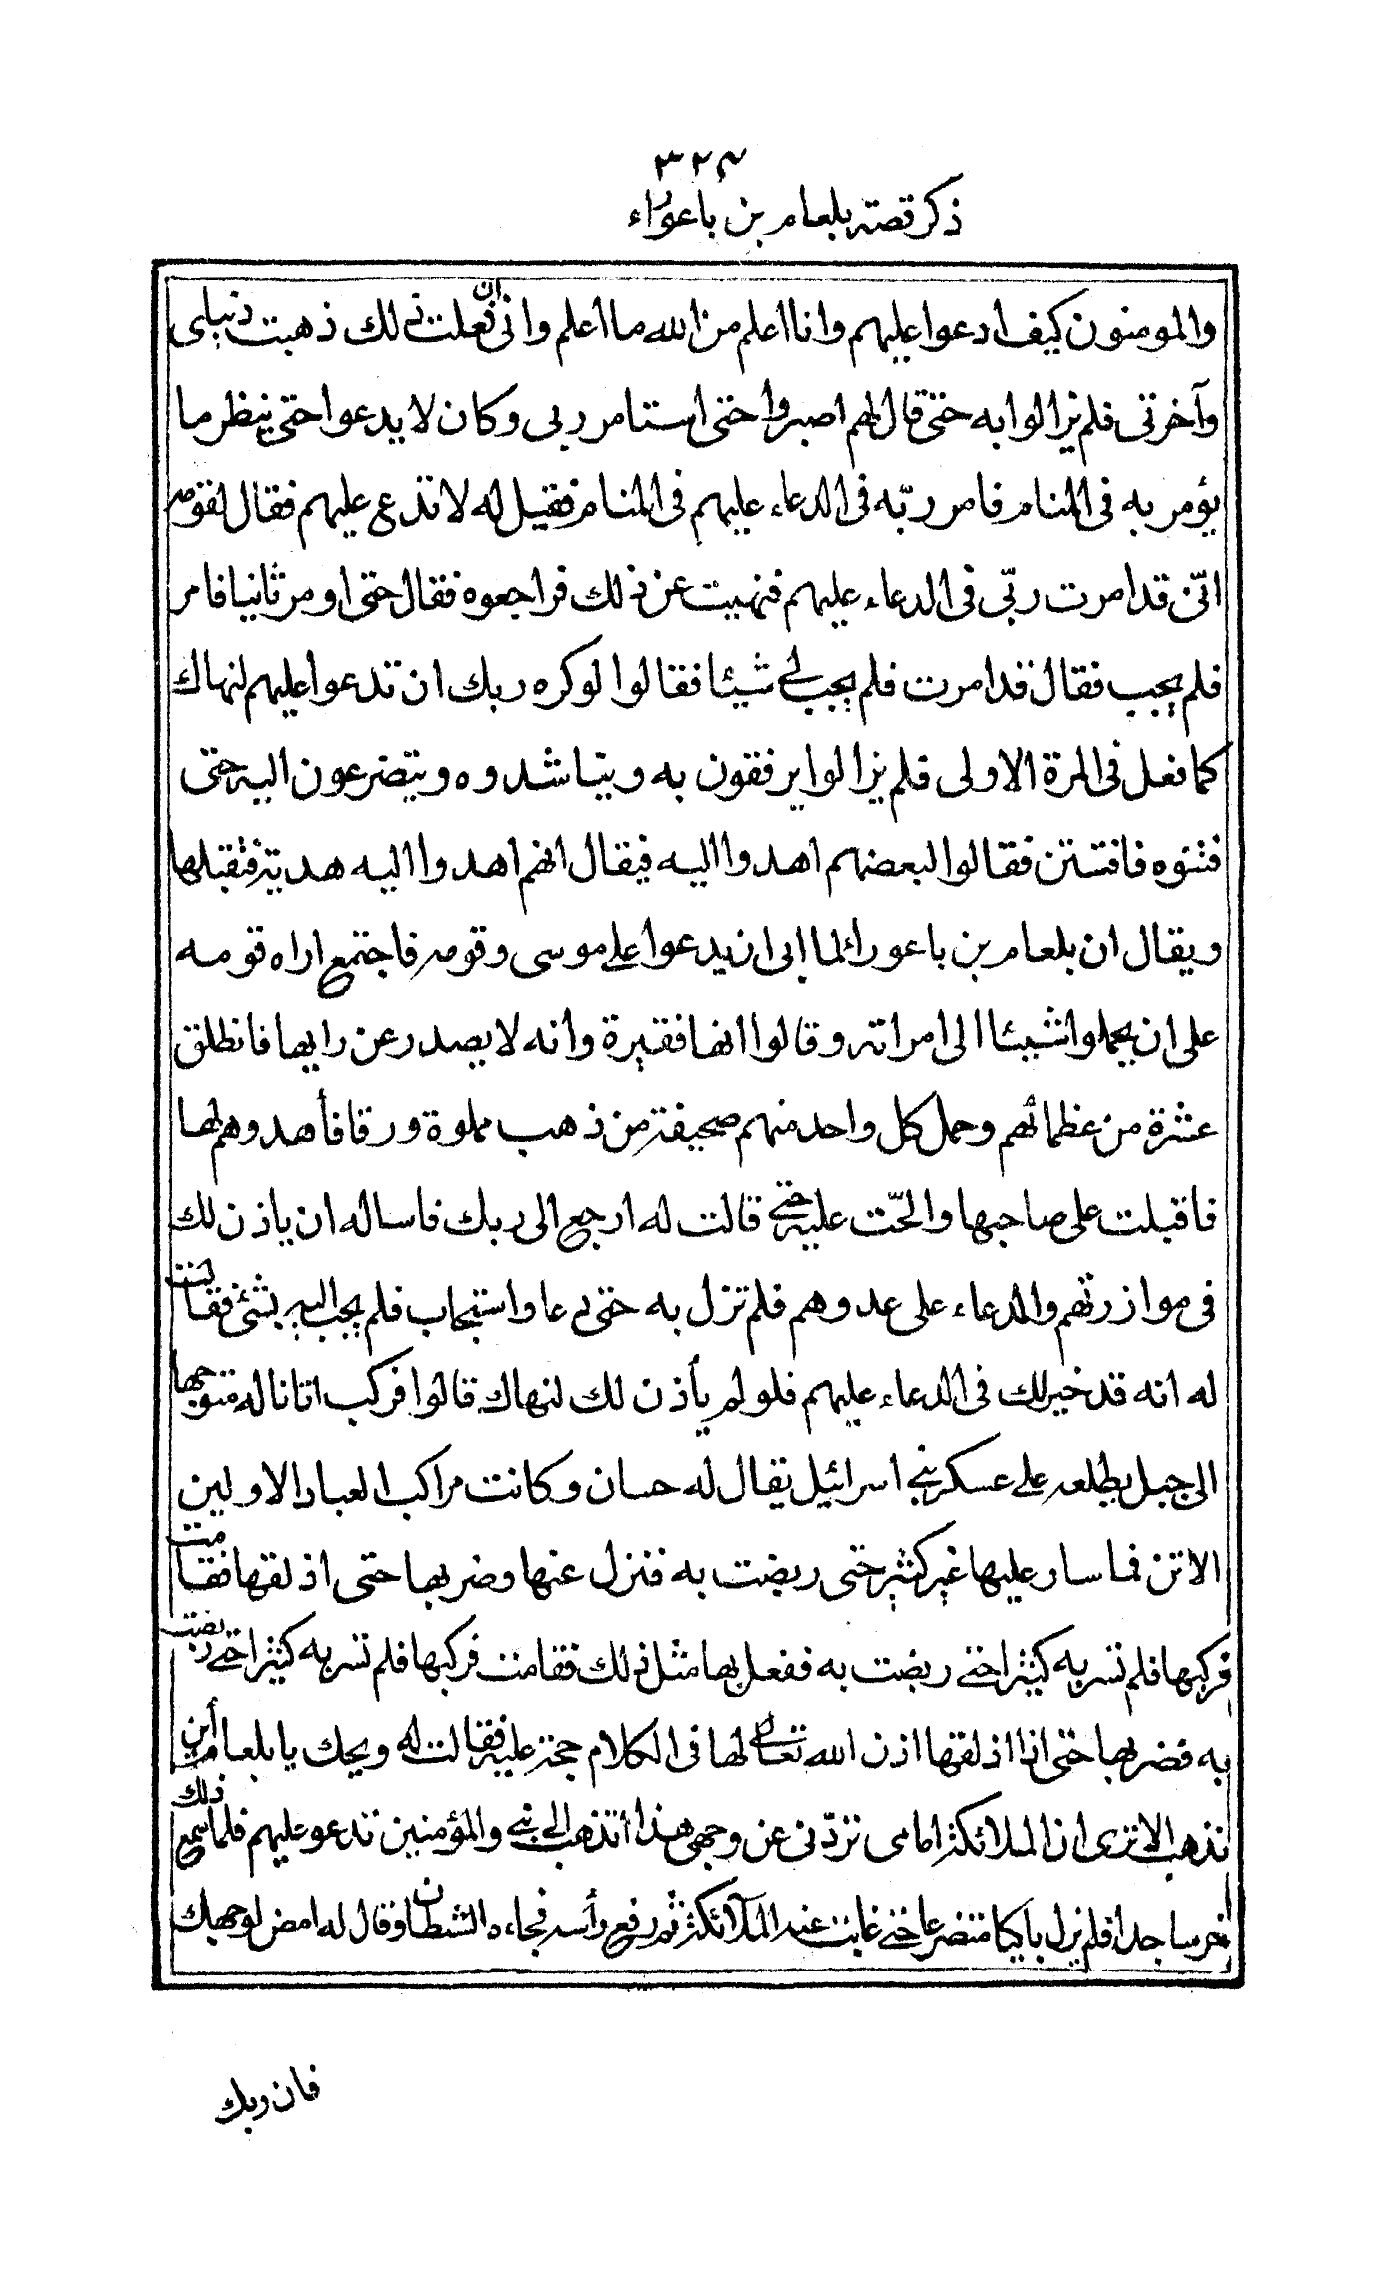 ٣٢٤
ذكر قصة بلعام بن باعوراء
والمومنون كيف ادعوا عليهم وانا اعلم من الله ما اعلم واني ان فعلت ذلك ذهبت دنياي
وآخرتي فلم يزالوا به حتى قال لهم اصبروا حتى استامر ربي وكان لا يدعوا حتى ينظر ما
يؤمر به في المنام فامر ربّه في الدعاء عليهم في المنام فقيل له لا تدع عليهم فقال لقومه
انّي قد امرت ربّي في الدعاء عليهم فنهيت عن ذلك فراجعوه فقال حتى اومر ثانيا فامر
فلم يجب فقال قد امرت فلم يجب لي شيئا فقالوا لو كره ربك ان تدعوا عليهم لنهاك
كما فعل في المرة الاولى فلم يزالوا يرفقون به ويناشدوه ويتضرعون اليه حتى
فتنوه فافتتن فقالوا لبعضهم اهدوا اليه فيقال انهم اهدوا اليه هدية فقبلها
ويقال ان بلعام بن باعورا لما ابى ان يدعوا على موسى وقومه فاجتمع اراه قومه
على ان يحملوا شيئا الى امراته وقالوا انها فقيرة وانه لا يصدر عن رايها فانطلق
عشرة من عظمائهم وحمل كل واحد منهم صحيفة من ذهب مملوة ورقا فأهدوهم لها
فاقبلت على صاحبها والحّت عليه حتى قالت له ارجع الى ربك فاساله ان ياذن لك
في موازرتهم والدعاء على عدوهم فلم تزل به حتى دعا واستجاب فلم يجب اليه بشئ فقالت
له انه قد خير لك في الدعاء عليهم فلو لم يأذن لك لنهاك قالوا فركب اتانا له متوجها
الى جبل يطلعه على عسكر بني اسرائيل يقال له حسان وكانت مراكب العباد الاولين
الاتن فما سار عليها غير كثير حتى ربضت به فنزل عنها وضربها حتى اذلقها فقامت
فركبها فلم تسر به كثيرا حتى ربضت به ففعل بها مثل ذلك فقامت فركبها فلم تسر به كثيرا حتى ربضت
به فضربها حتى اذا اذلقها اذن الله تعالى لها في الكلام حجة عليه فقالت له ويحك يا بلعام أين
تذهب الا ترى ان الملائكة امامي تردّني عن وجهي هذا أتذهب الى نبي والمؤمنين تدعو عليهم فلما سمع ذلك
خر ساجدا فلم يزل باكيا متضرعا حتى غابت عنه الملآئكة ثم رفع رأسه فجاءه الشيطان وقال له امض لوجهك
فان ربك